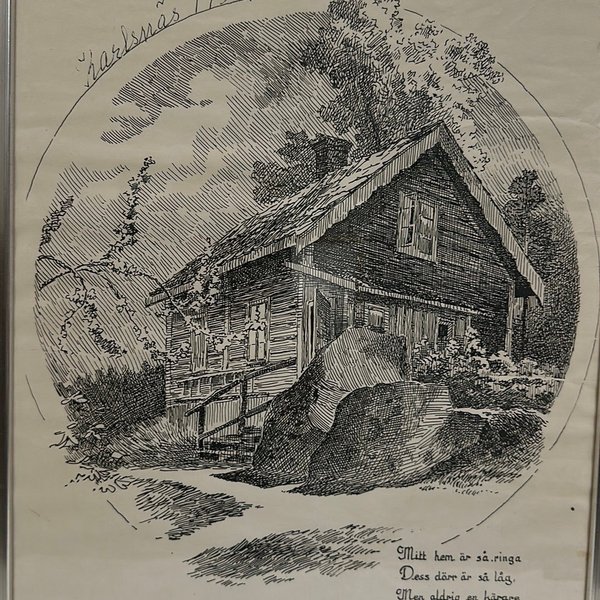 Karlsnäs
Mitt hem är så ringa
Dess dörr är så låg,
Men aldrig en kärare